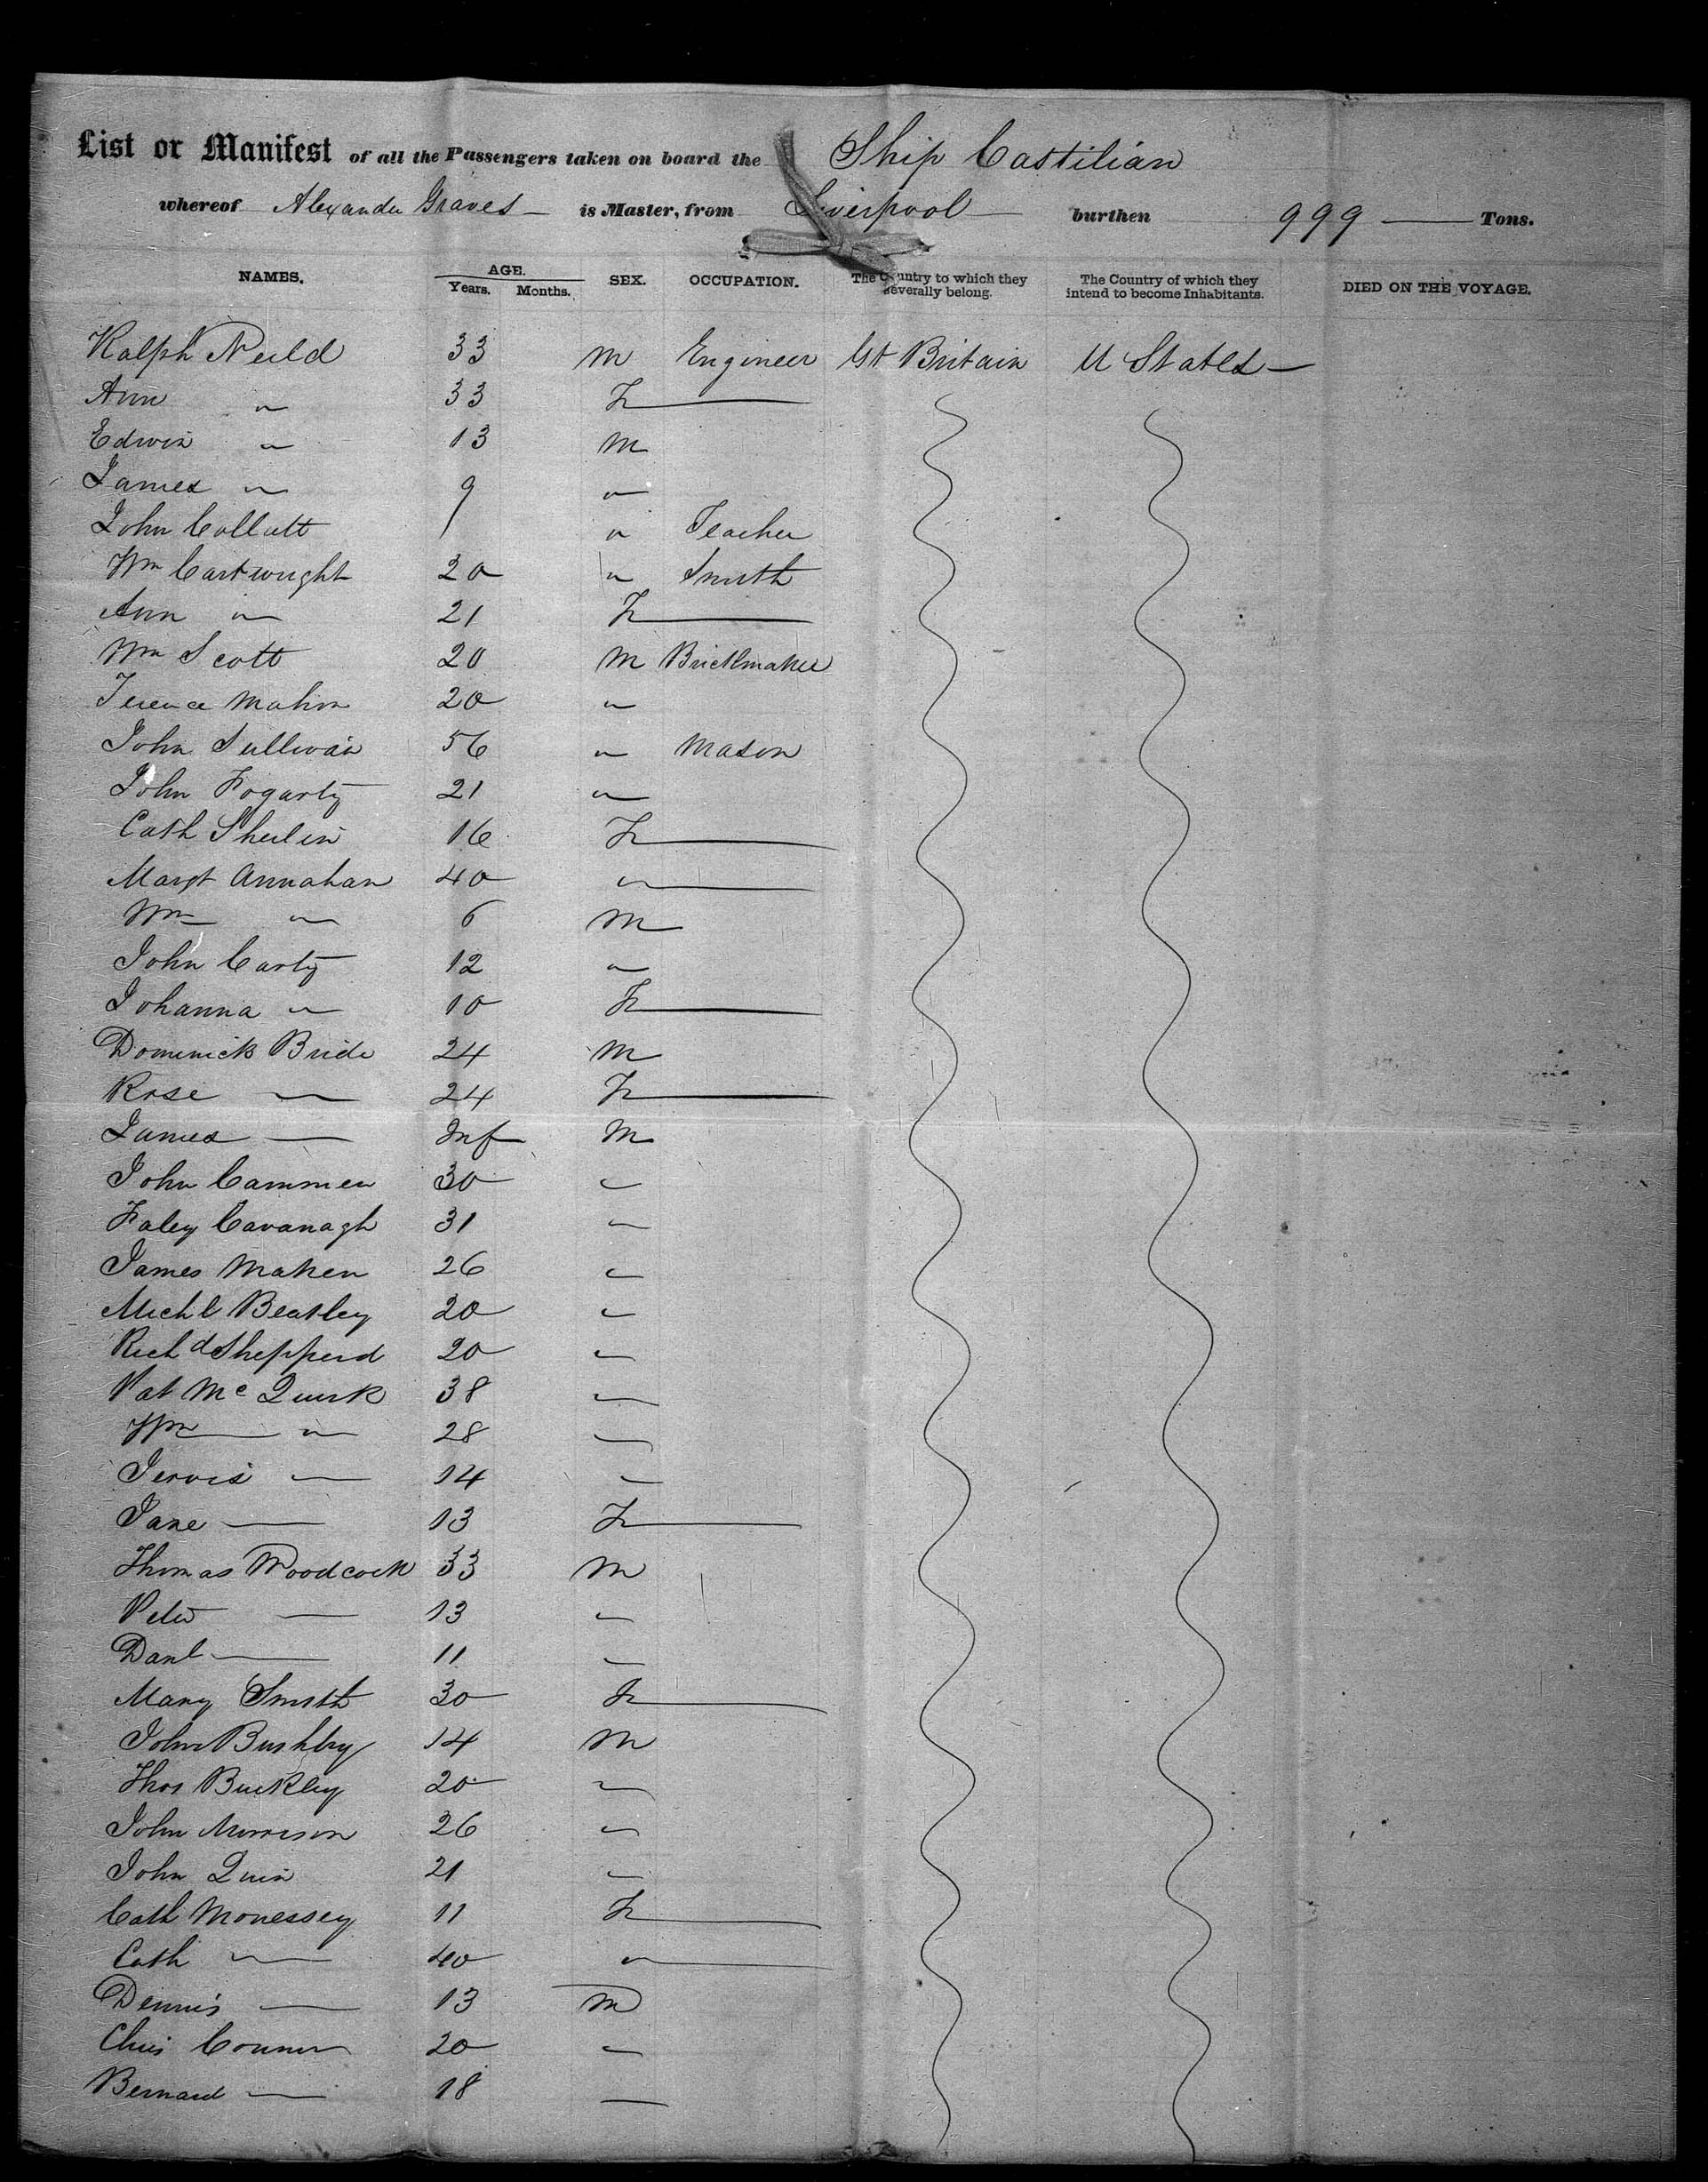 List or Manifest of all the Passengers taken on board the Ship Castilian
whereof Alexander Graves is Master, from Liverpool burthen 999 Tons.
NAMES. AGE. Years. Months. SEX. OCCUPATION. The Country to which they severally belong. The Country of which they intend to become Inhabitants. DIED ON THE VOYAGE.
Ralph Neild 33 M Engineer Gt Britain U States
Ann " 33 F
Edwin " 13 M
James " 9 "
John Collutt " Teacher
Wm Cartwright 20 " Smith
Ann " 21 F
Wm Scott 20 M Brickmaker
Terence Mahon 20 "
John Sullivan 56 " Mason
John Fogarty 21 "
Cath Sheilin 16 F
Margt Annahan 40 "
Wm " 6 M
John Carty 12 "
Johanna " 10 F
Dominick Bride 24 M
Rose " 24 F
James " Inf M
John Cammen 30 "
Faley Cavanagh 31 "
James Maken 26 "
Michl Beatley 20 "
Richd Shepperd 20 "
Pat McQuirk 38 "
Wm " 28 "
Jervis " 14 "
Jane " 13 F
Thomas Woodcock 33 M
Peter " 13 "
Danl " 11 "
Mary Smith 30 F
John Bushby 14 M
Thos Buckley 20 "
John Morrison 26 "
John Quin 21 "
Cath Monessey 11 F
Cath " 40 "
Dennis " 13 M
Chris Connor 20 "
Bernard " 18 "